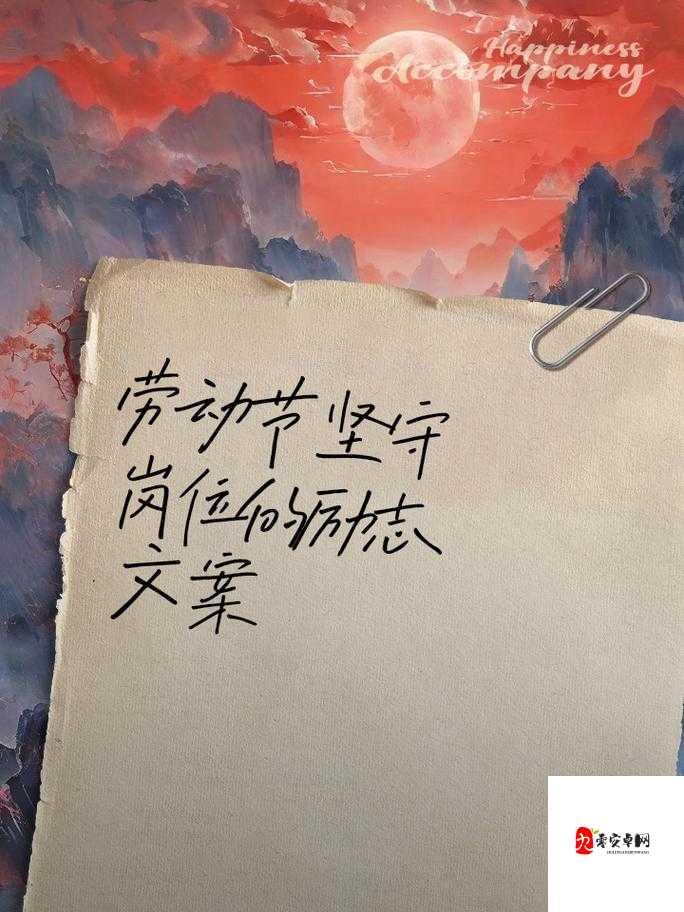 Happiness
Accompany
劳动节坚守
岗位的励志
文案
零安卓网